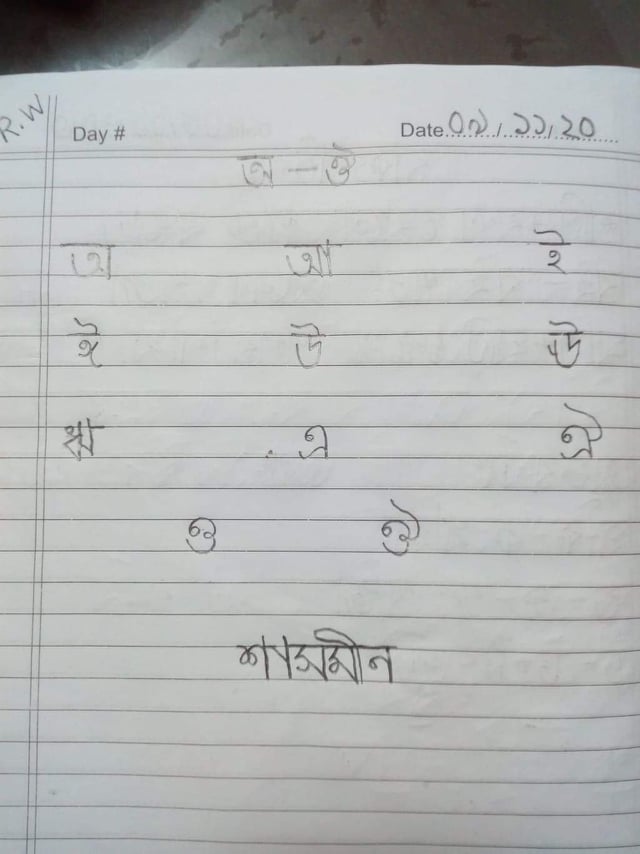 R.W
Day # Date ০৯/১১/২০
অ – ঔ
অ আ ই
ঈ উ ঊ
ঋ এ ঐ
ও ঔ
শাসমীন